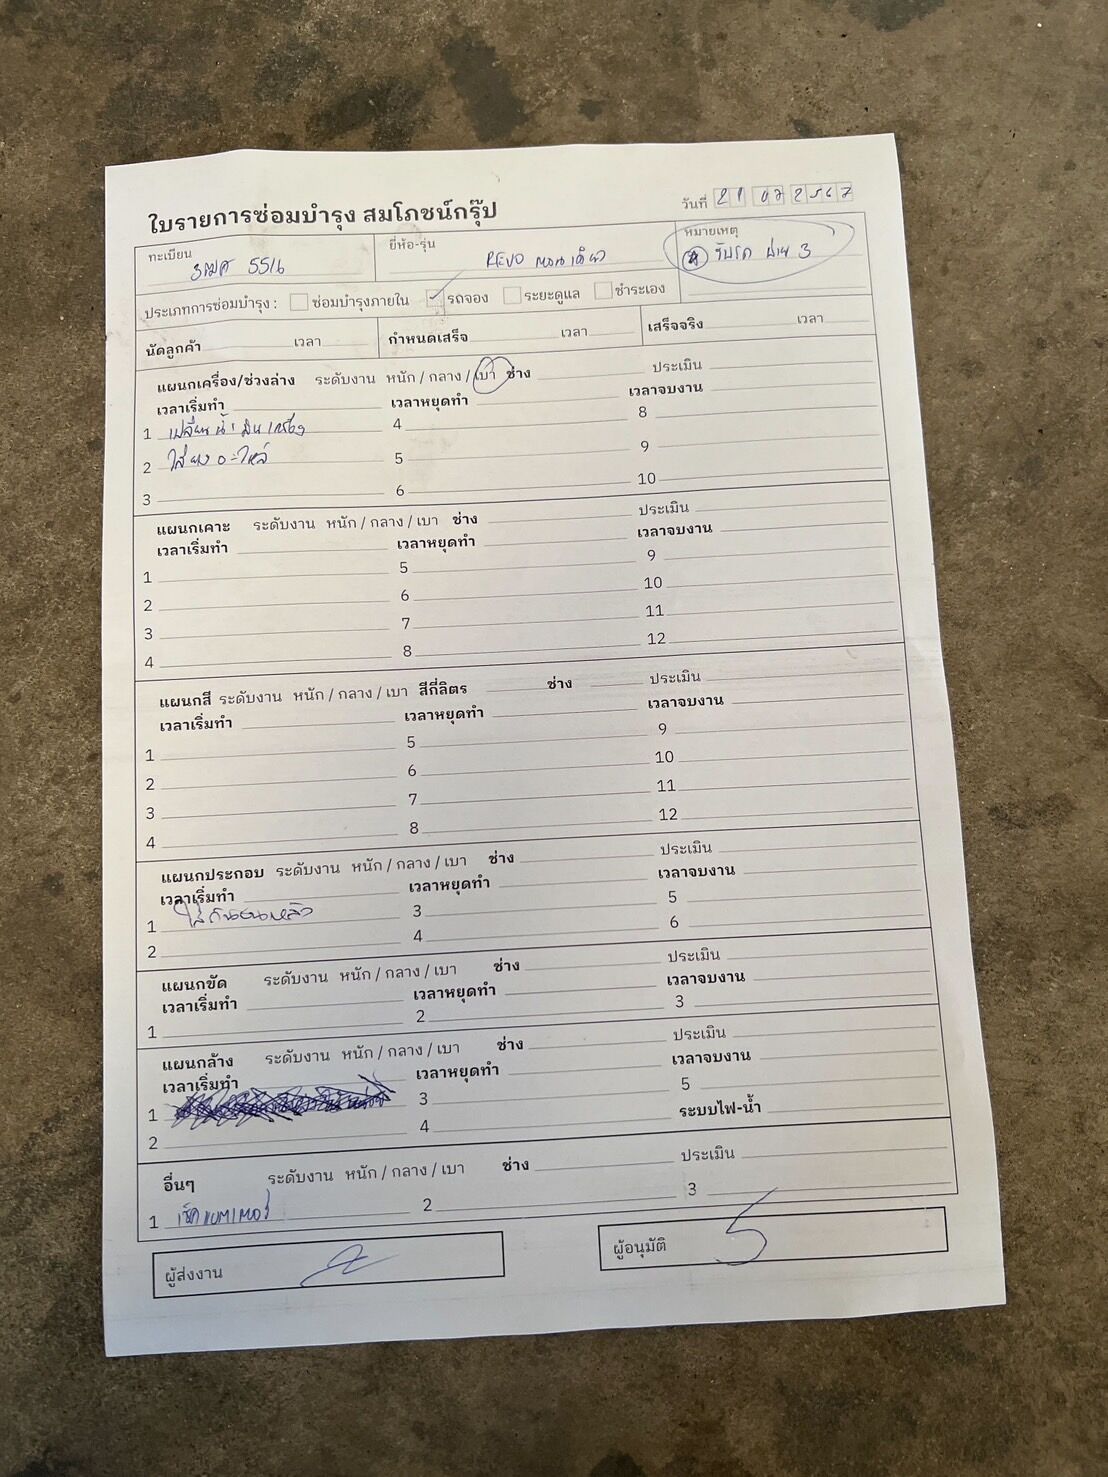 ใบรายการซ่อมบำรุง สมโภชน์กรุ๊ป
วันที่ 21 07 2567
ทะเบียน 5516
ยี่ห้อ-รุ่น REVO ตอนเดียว
หมายเหตุ
รับรถ บ่าย 3
ประเภทการซ่อมบำรุง : ซ่อมบำรุงภายใน ✓ รถจอง ระยะดูแล ชำระเอง
นัดลูกค้า เวลา กำหนดเสร็จ เวลา เสร็จจริง เวลา
แผนกเครื่อง/ช่วงล่าง ระดับงาน หนัก / กลาง / เบา ช่าง ประเมิน
เวลาเริ่มทำ เวลาหยุดทำ เวลาจบงาน
1 เปลี่ยนน้ำมันเครื่อง 4 8
2 ใส่ยางอะไหล่ 5 9
3 6 10
แผนกเคาะ ระดับงาน หนัก / กลาง / เบา ช่าง ประเมิน
เวลาเริ่มทำ เวลาหยุดทำ เวลาจบงาน
1 5 9
2 6 10
3 7 11
4 8 12
แผนกสี ระดับงาน หนัก / กลาง / เบา สีกี่ลิตร ช่าง ประเมิน
เวลาเริ่มทำ เวลาหยุดทำ เวลาจบงาน
1 5 9
2 6 10
3 7 11
4 8 12
แผนกประกอบ ระดับงาน หนัก / กลาง / เบา ช่าง ประเมิน
เวลาเริ่มทำ เวลาหยุดทำ เวลาจบงาน
1 ใส่กันชนหลัง 3 5
2 4 6
แผนกขัด ระดับงาน หนัก / กลาง / เบา ช่าง ประเมิน
เวลาเริ่มทำ เวลาหยุดทำ เวลาจบงาน
1 2 3
แผนกล้าง ระดับงาน หนัก / กลาง / เบา ช่าง ประเมิน
เวลาเริ่มทำ เวลาหยุดทำ เวลาจบงาน
1 3 5
2 4 ระบบไฟ-น้ำ
อื่นๆ ระดับงาน หนัก / กลาง / เบา ช่าง ประเมิน
1 เช็คแบตเตอรี่ 2 3
ผู้ส่งงาน
ผู้อนุมัติ